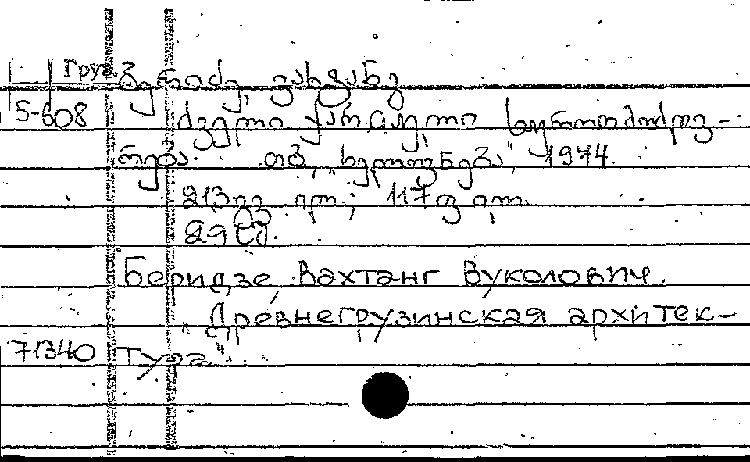 Груз. ბერიძე, ვახტანგ
5-608 ძველი ქართული ხუროთმოძღვ-
რება. თბ., "ხელოვნება", 1974.
213 გვ. ილ.; 117 ფ. ილ.
29 სმ.
Беридзе, Вахтанг Вуколович.
"Древнегрузинская архитек-
71340 тура".